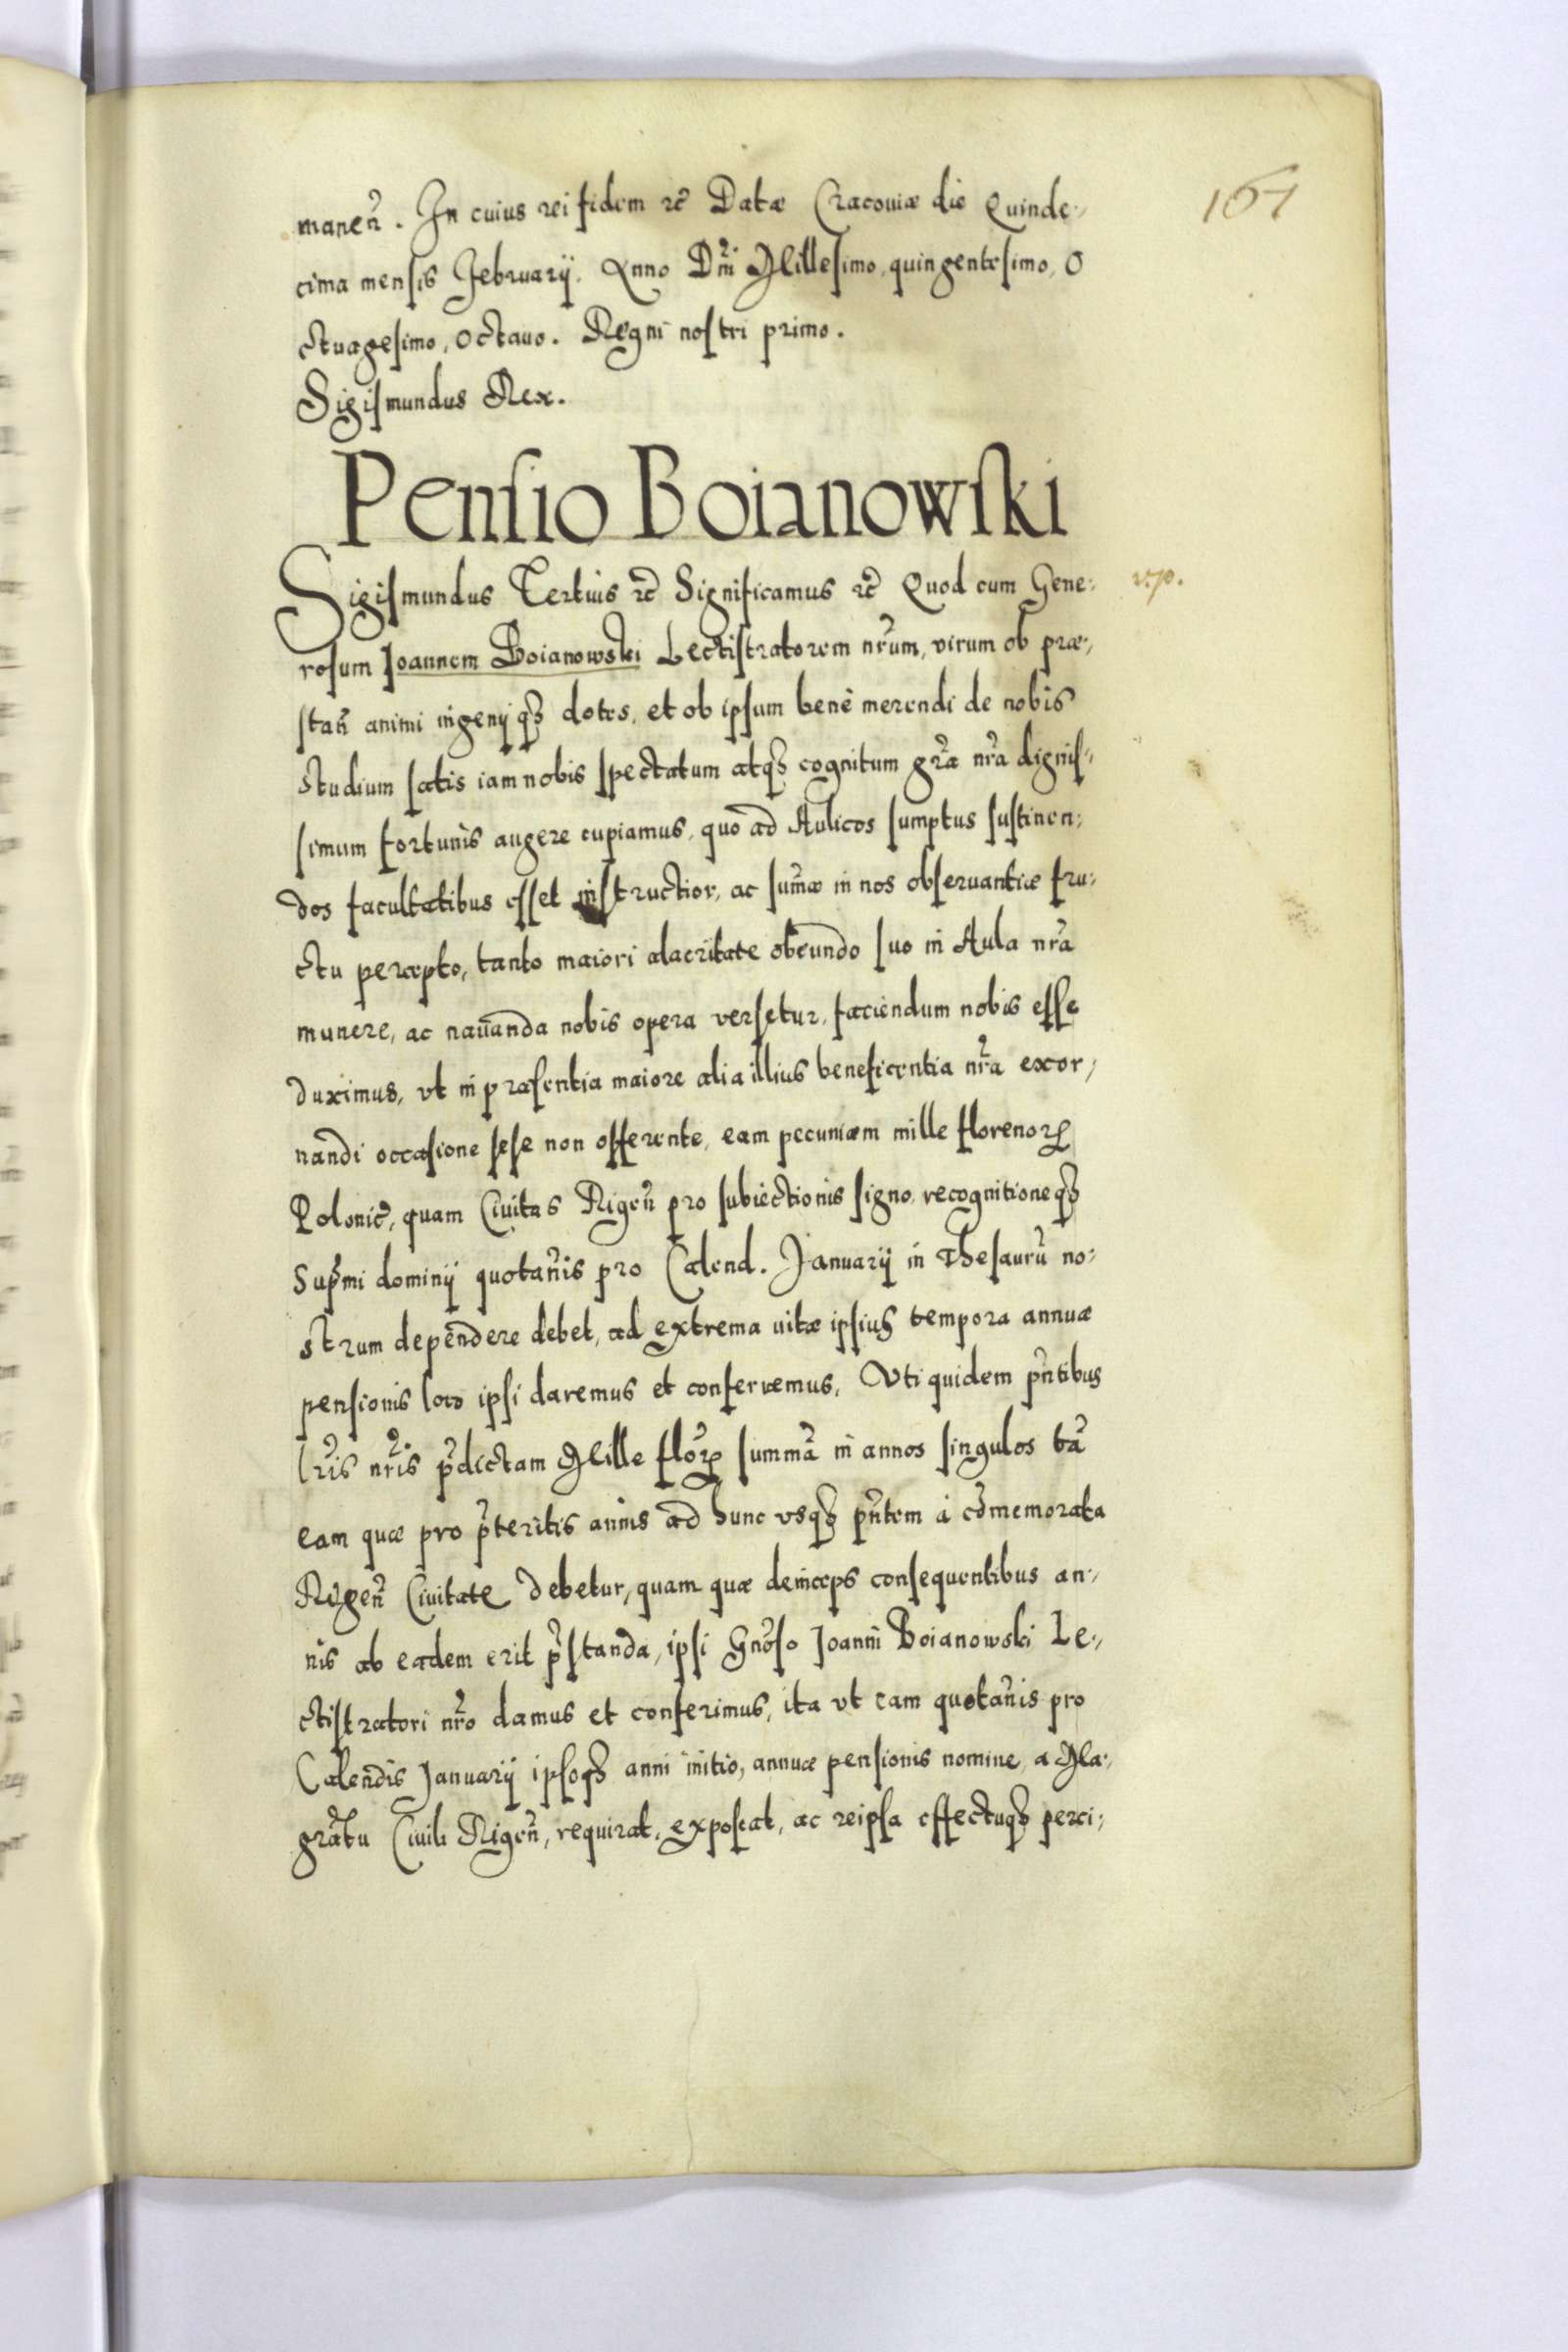 161
maneñ. In cuius rei fidem etc̃ Datæ Cracouiæ die Quinde-
cima mensis Februarij. Anno Dn̄i Millesimo, quingentesimo, O
ctuagesimo, Octauo. Regni nostri primo.
Sigismundus Rex.
Pensio Boianowski
Sigismundus Tertius etc̃ Significamus etc̃ Quod cum Gene-
rosum Joannem Boianowski Lectistratorem nr̃um, virum ob præ-
stañ animi ingenijq3 dotes, et ob ipsum benè merendi de nobis
studium satis iam nobis spectatum atq3 cognitum gr̃a nr̃a dignis-
simum fortunis augere cupiamus, quo ad Aulicos sumptus sustinen-
dos facultatibus esset instructior, ac sum̃æ in nos obseruantiæ fru-
ctu percepto, tanto maiori alacritate obeundo suo in Aula nr̃a
munere, ac nauanda nobis opera versetur, faciendum nobis esse
duximus, vt in præsentia maiore alia illius beneficentia nr̃a exor-
nandi occasione sese non offerente, eam pecuniam mille florenoꝝ
Polonic̃, quam Ciuitas Rigeñ pro subiectionis signo, recognitioneq3
Sup̃mi dominij quotañis pro Calend. Januarij in Thesaurũ no-
strum dependere debet, ad extrema uitæ ipsius tempora annuæ
pensionis loco ipsi daremus et conferremus, Vti quidem pñtibus
lr̃is nr̃is p̃dictam Mille flor̃ꝝ summã in annos singulos tã
eam quæ pro p̃teritis annis ad hunc vsq3 pñtem à cõmemorata
Rigeñ Ciuitate debetur, quam quæ deinceps consequentibus an-
nis ab eadem erit p̃standa, ipsi Gnõso Joanni Boianowski Le-
ctistratori nr̃o damus et conferimus, ita vt eam quotañis pro
Calendis Januarij ipsoq3 anni initio, annuæ pensionis nomine, a Ma-
gr̃atu Ciuili Rigeñ, requirat, exposcat, ac reipsa effectuq3 perci-